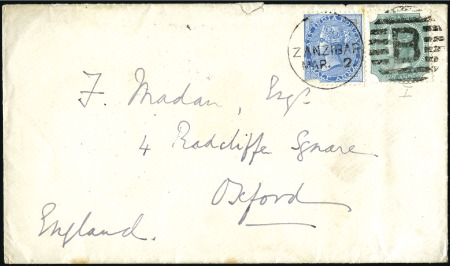 ZANZIBAR
MAR. 2
B
F. Madan, Esqr
4 Radcliffe Square
Oxford
England.